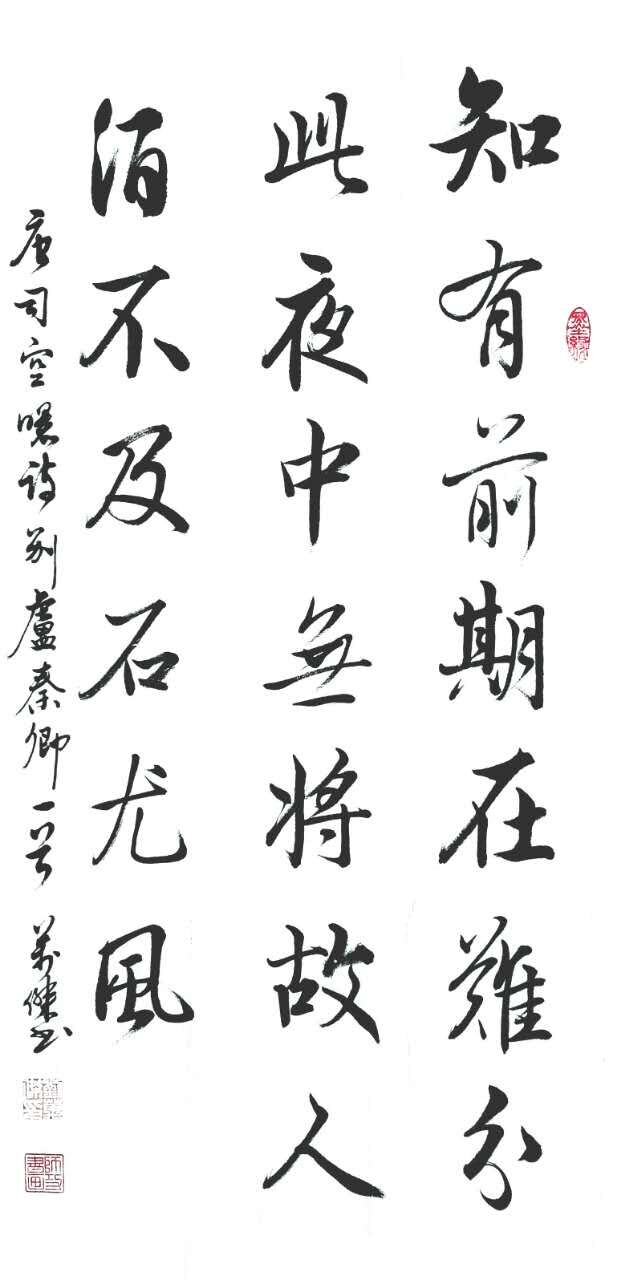 知有前期在難分
此夜中無將故人
酒不及石尤風
唐司空曙詩別盧秦卿一首 萬傑書